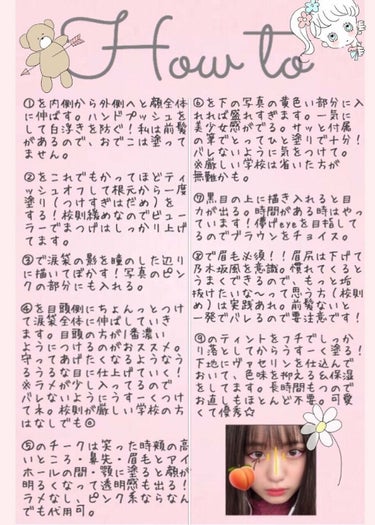 How to
①を内側から外側へと顔全体
に伸ばす。ハンドプッシュを
して白浮きを防ぐ!私は前髪
があるので、おでこは塗って
ません。
②をこれでもかってほどティ
ッシュオフして根元から一度
塗り(つけすぎはだめ)を
する!校則緩めなのでビュー
ラーでまつげはしっかり上げ
てます。
③で涙袋の影を瞳のした辺り
に描いてぼかす!写真のピン
クの部分にも入れる。
④を目頭側にちょんっとつけ
て涙袋全体に伸ばしていき
ます。目頭の方が1番濃い
ようにつけるのがおススメ。
守ってあげたくなるようなう
るうるな目に仕上げていく!
※ラメが少し入ってるので
バレないようにうすーくつけ
てネ。校則が厳しい学校の方
はなしでも◎
⑤のチークは笑った時頬の高
いところ・鼻先・眉毛とアイ
ホールの間・顎に塗ると顔が
明るくなって透明感も出る!
ラメなし、ピンク系ならなん
でも代用可。
⑥を下の写真の黄色い部分に入
れれば盛れすぎます。一気に
美少女感がでる。サッと付属
の筆でとってひと塗りで十分!
バレないように気をつけて。
※厳しい学校は省いた方が
無難かも。
⑦黒目の上に描き入れると目
力が出る。時間がある時はやっ
ています!儚げeyeを目指して
るのでブラウンをチョイス。
⑧で眉毛必須!!眉尻は下げて
乃木坂風を意識。慣れてくると
うまくできるので、もっと垢
抜けたいな〜って思う方(校則
緩め)は実践あれ。前髪ないと
一発でバレるので要注意です!
⑨のティントをフチでしっか
り落としてからうすーく塗る!
下地にヴァセリンを仕込んで
おいて、色味を抑える&保湿
をしてます。長時間もつので
お直しもほとんど不要。可愛
くて優秀☆